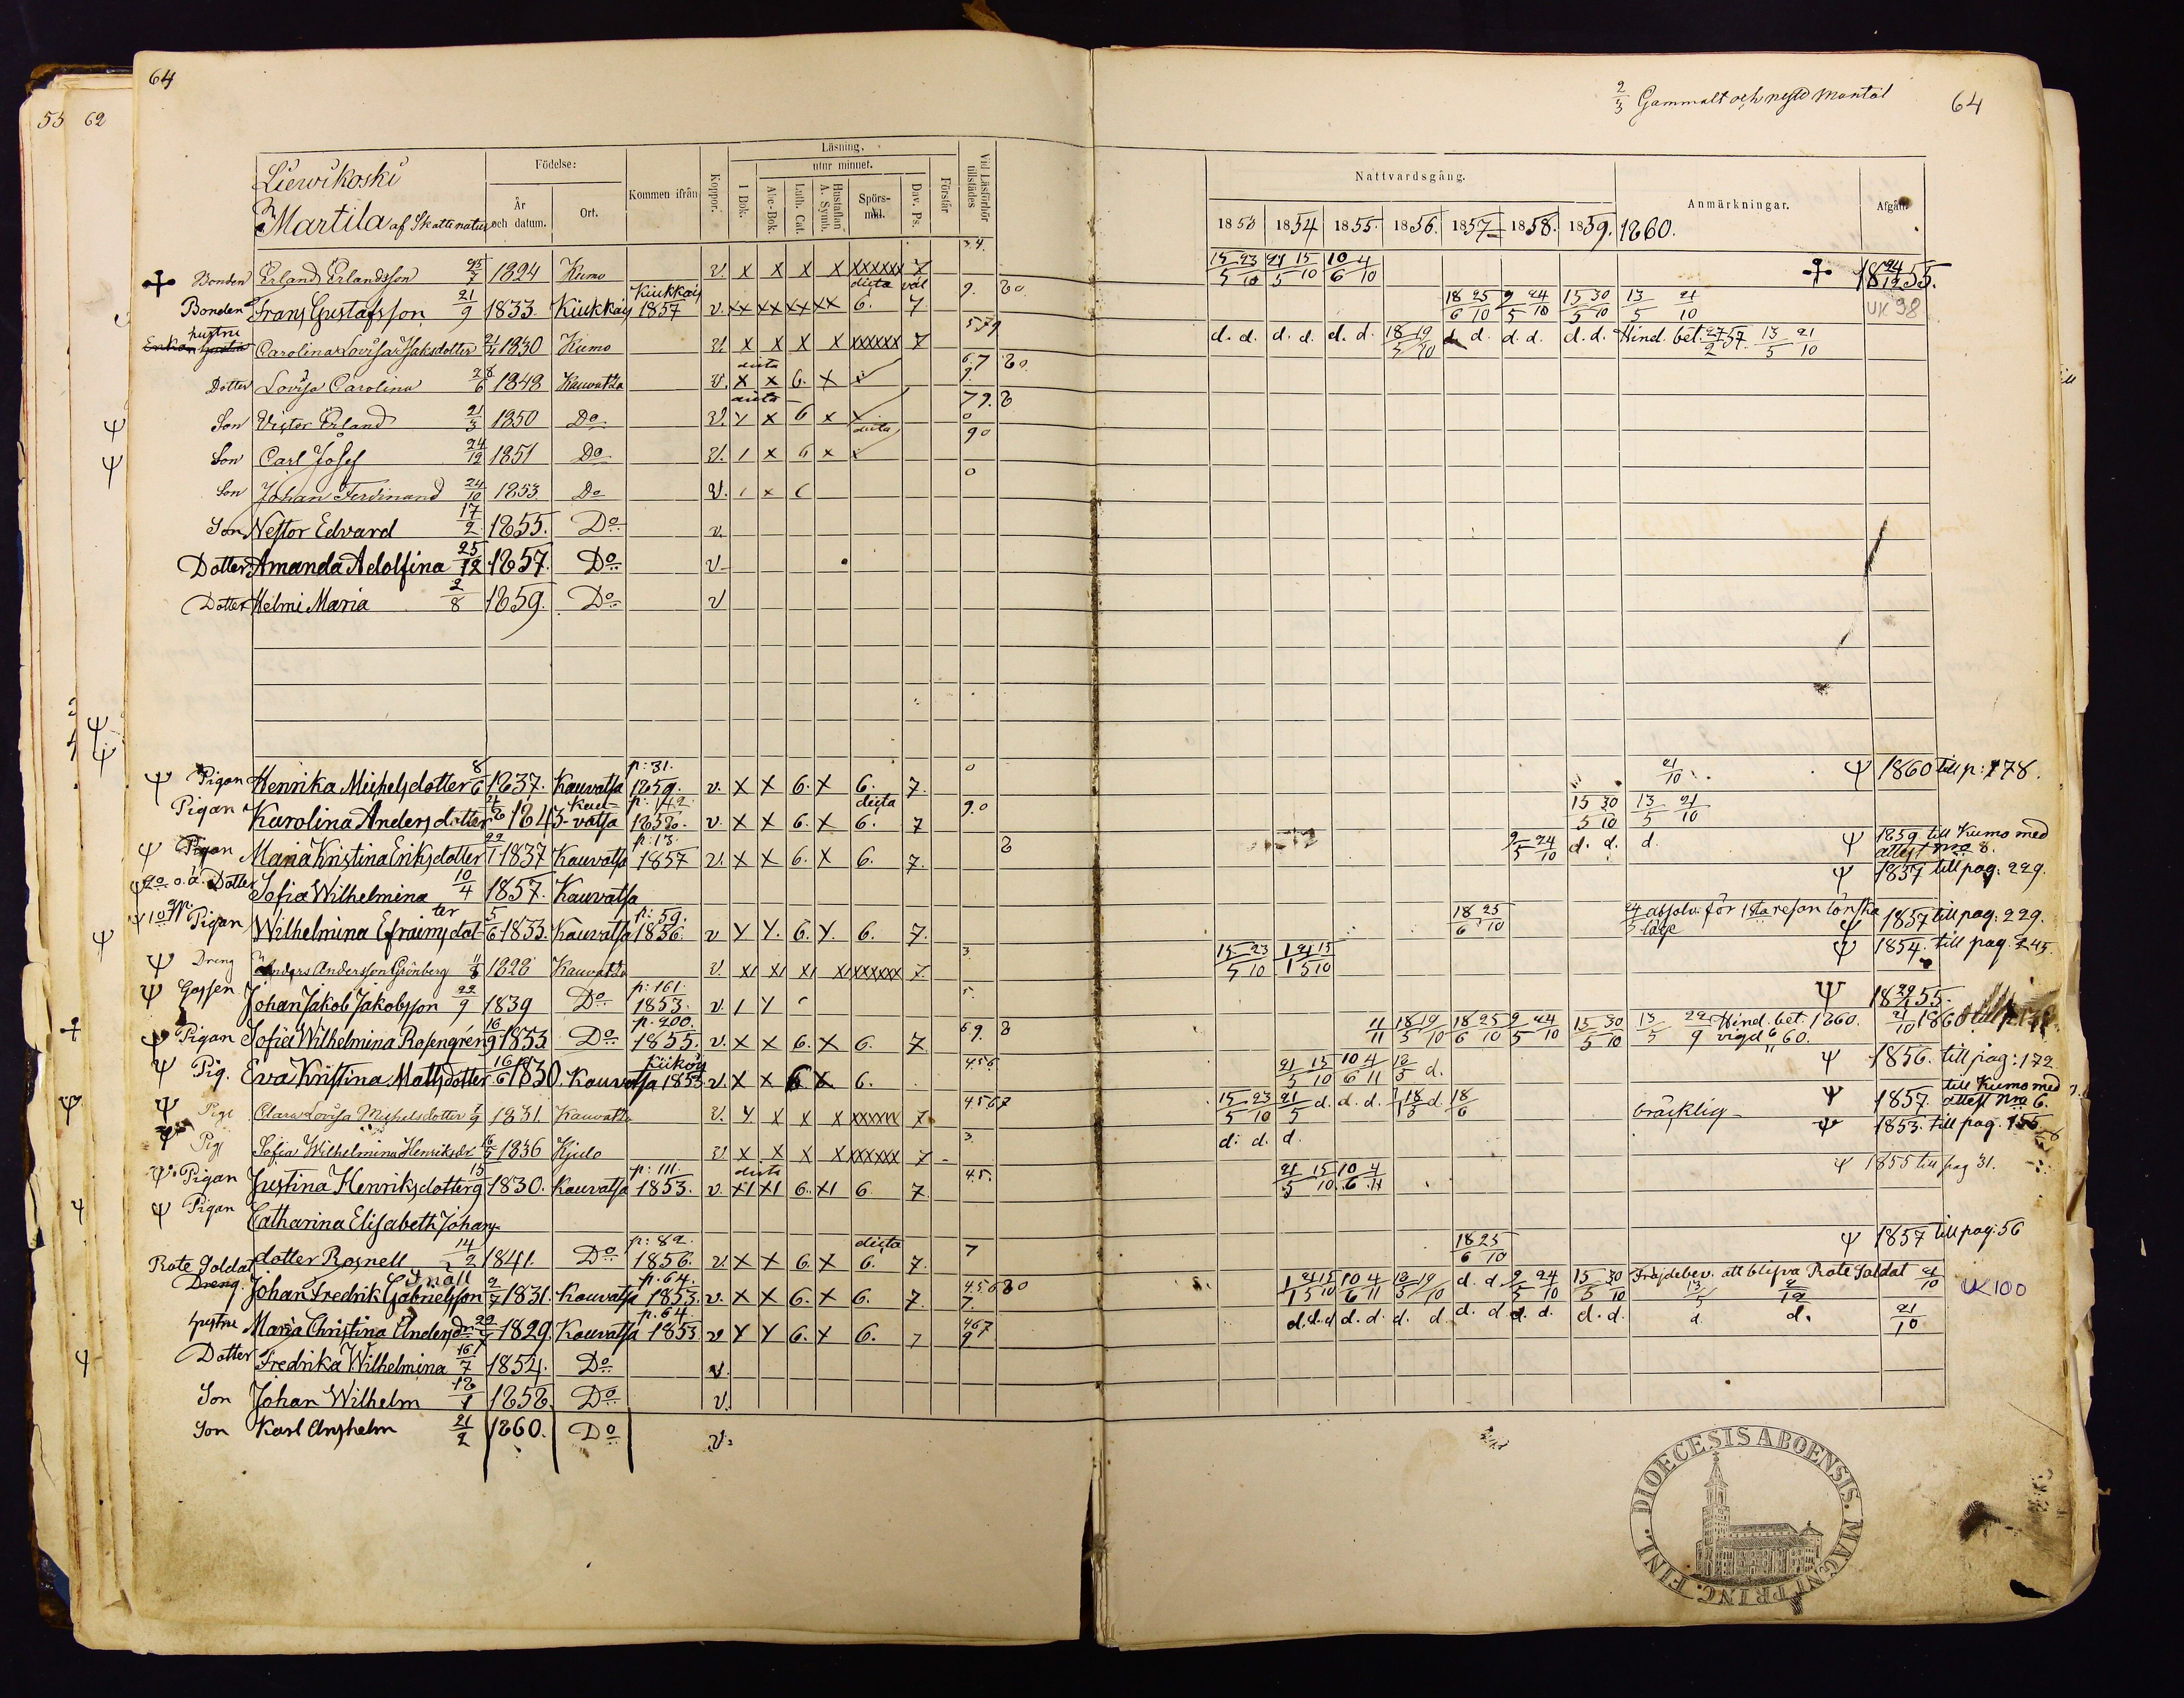 64
55 62
2/3 Gammalt och nytt Mantal
64
Liewikoski
Martila af Skattenatur
Födelse:
År och datum.
Ort.
Kommen ifrån
Koppor.
Läsning.
utur minnet.
I Bok.
Abc-Bok.
Luth. Cat.
Hustaflan A. Symb.
Spörsmål.
Dav. Ps.
Förstår
Vid Läsförhör tillstädes
Nattvardsgång.
1853 1854 1855. 1856. 1857 1858. 1859. 1860.
Anmärkningar.
Afgån.
Bonden Erland Erlandsson 1824 Kumo v. x x x x xxxxxx 7 15/5 23/10 21/5 15/10 10/6 4/10 18 24/12 55.
Bonden Frans Gustafsson 21/9 1833. Kiukkais Kiukkais 1857 v. xx xx xx xx dicta 6. väl 7. 9. 18/6 25/10 9/5 24/10 15/5 30/10 13/5 21/10 UK 98
Enkan hustru Carolina Lovisa Isaksdotter 1830 Kumo v. x x x x xxxxxx 7 579 d. d. d. d. d. d. 18/5 19/10 d. d. d. d. d. d. Hind. bet. 27/2 57. 13/5 21/10
Dotter Lovisa Carolina 28/6 1848 Kauvatsa v. x x 6. x dicta 67 9.
Son Victor Erland 21/3 1850 Do v. x 6 x dicta 79.
Son Carl Josef 24/12 1851 Do v. 1 x 6 x dicta 90
Son Johan Ferdinand 24/10 1853. Do v. 1 x 6 0
Son Nestor Edvard 17/2 1855. Do v.
Dotter Amanda Adolfina 25/12 1857. Do v
Dotter Helmi Maria 2/8 1859. Do v
Pigan Henrika Michelsdotter 8/6 1837. Kauvatsa p: 31. 1859. v. x x 6. x 6. 7. 0 21/10 1860 till p: 178.
Pigan Karolina Andersdotter 1843 Kauvatsa p: 142. 1858. v. x x 6. x dicta 6. 7 9.0 15/5 30/10 13/5 21/10
Pigan Maria Kristina Eriksdotter 22/1 1837 Kauvatsa p: 13 1857 v. x x 6. x 6. 7. 9/5 24/10 d. d. d. 1859 till Kumo med attest nro 8.
o. ä. Dotter Sofia Wilhelmina 10/4 1857. Kauvatsa 1857 till pag: 229.
Pigan Wilhelmina Efraimsdotter 5/6 1833. Kauvatsa p: 59. 1856. v y y. 6. y. 6. 7. 18/6 25/10 absolv. för 1sta resan lönska läge 1857 till pag: 229.
Dreng Anders Andersson Grönberg 11/8 1828 Kauvatsa v. x1 x1 x1 x1 xxxxxx 7 3. 15/5 23/10 1/1 21/5 15/10 1854. till pag. 245.
Gossen Johan Jakob Jakobsson 22/9 1839 Do p: 161. 1853. v. 1 y 5. 18 29/1 55.
Pigan Sofia Wilhelmina Rosengrén 16/9 1833 Do p. 200. 1855. v. x x 6. x 6. 7. 69. 11/11 18/5 19/10 18/6 25/10 9/5 24/10 15/5 30/10 13/5 22/9 Hind. bet. 1860. vigd 6/11 60. 21/10 1860 till
Pig. Eva Kristina Mattsdotter 16/6 1830. Kauvatsa Kiikois 1853. v. x x 6 x 6. 456 21/5 15/10 10/6 4/11 18/5 d. 1856. till pag: 172
Pig: Clara Lovisa Michelsdotter 1831. Kauvatsa v. y x x x xxxxxx 7 4567 15/5 23/10 21/5 d. d. d. 18/5 d. 18/6 bräcklig 1857. till Kumo med attest nro 6.
Pig: Sofia Wilhelmina Henriksdr 16/5 1836 Kjulo v x x x x xxxxxx 7 3. d. d. d. 1853. till pag. 155
Pigan Justina Henriksdotter 15/9 1830. Kauvatsa p: 111. 1853. v. x1 x1 dicta 6. x1 6 7. 45. 21/5 15/10 10/6 4/11 1855 till pag 31.
Pigan Catharina Elisabeth Johans-
dotter Rosnell 14/2 1841. Do p: 82. 1856. v. x x 6. x dicta 6. 7. 7 18/6 25/10 1857 till pag: 56
Rote Soldat Dreng. Johan Fredrik Gabrielsson Snäll 2/7 1831. Kauvatsa p. 64. 1853. v. x x 6. x 6. 7. 456 7. 1/1 21/5 15/10 10/6 4/11 18/5 19/10 d. d. 9/5 24/10 15/5 30/10 Frejdebev. att blifva Rote Soldat 13/5 21/10 UK 100
hustru Maria Christina Andersdr 1829. Kauvatsa p. 64 1853 v y y 6. x 6. 7 467 9. d. d. d. d. d. d. d. d. d. d. d. d. d. d. d. 21/10
Dotter Fredrika Wilhelmina 16/7 1854. Do v.
Son Johan Wilhelm 18/1 1858. Do v.
Son Karl Anshelm 21/2 1860. Do v.
DIOECESIS ABOENSIS. MAGNI PRINC. FINL.